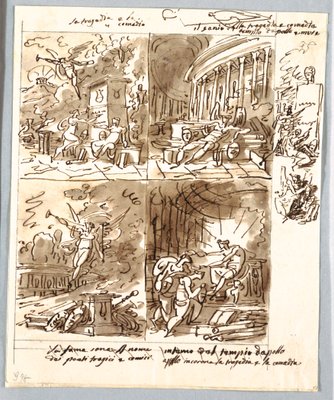 la tragedia e la
comedia
il genio della tragedia e comedia
tempio d'apollo e muse
la fama sona il nome
dei poeti tragici e comici
interno del tempio d apollo
apollo incorona la tragedia e la comedia